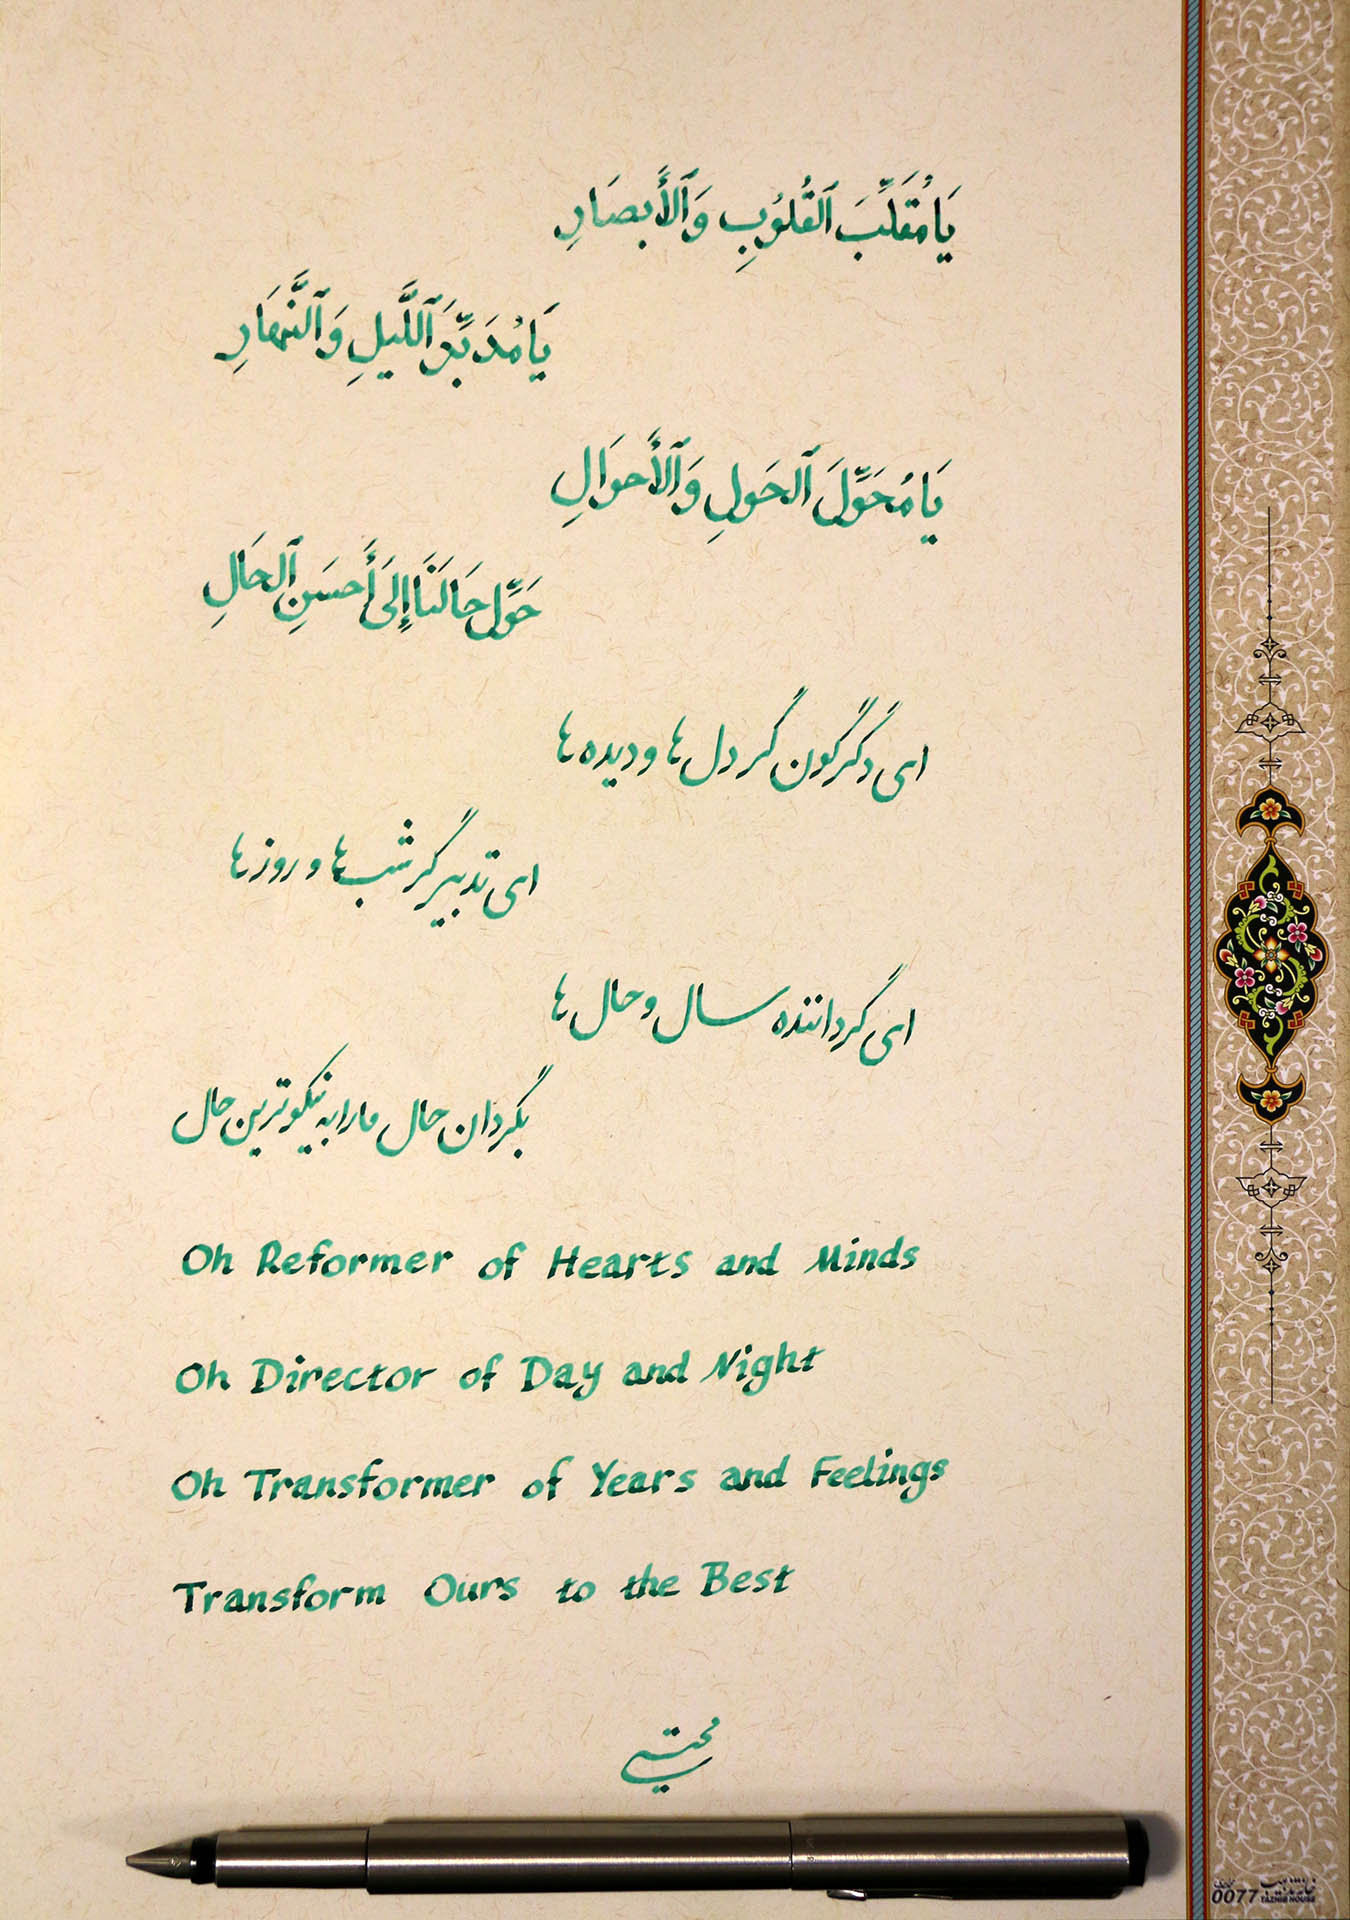 يَا مُقَلِّبَ ٱلقُلُوُبِ وَٱلأَبصَارِ
يَا مُدَبِّرَ ٱللَّيلِ وَٱلنَّهَارِ
يَا مُحَوِّلَ ٱلحَولِ وَٱلأَحوَالِ
حَوِّل حَالَنَا إِلَىَ أَحسَنِ ٱلحَالِ
ای دگرگون گر دل ها و دیده ها
ای تدبیرگر شب ها و روز ها
ای گرداننده سال و حال ها
بگردان حال ما را به نیکوترین حال
Oh Reformer of Hearts and Minds
Oh Director of Day and Night
Oh Transformer of Years and Feelings
Transform Ours to the Best
مجتبی
0077 خانه تذهیب
TAZHIB HOUSE